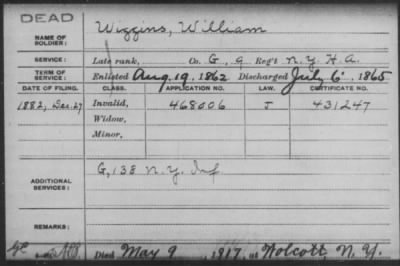 DEAD
NAME OF SOLDIER: Wiggins, William
SERVICE: Late rank, Co. G, 9 Reg't N.Y. H.A.
TERM OF SERVICE: Enlisted Aug. 19, 1862 Discharged July 6, 1865
DATE OF FILING. CLASS. APPLICATION NO. LAW. CERTIFICATE NO.
1882, Dec. 27 Invalid, 468006 J 431247
Widow,
Minor,
ADDITIONAL SERVICES: G, 138 N.Y. Inf
REMARKS:
Died May 9, 1917, at Wolcott, N.Y.